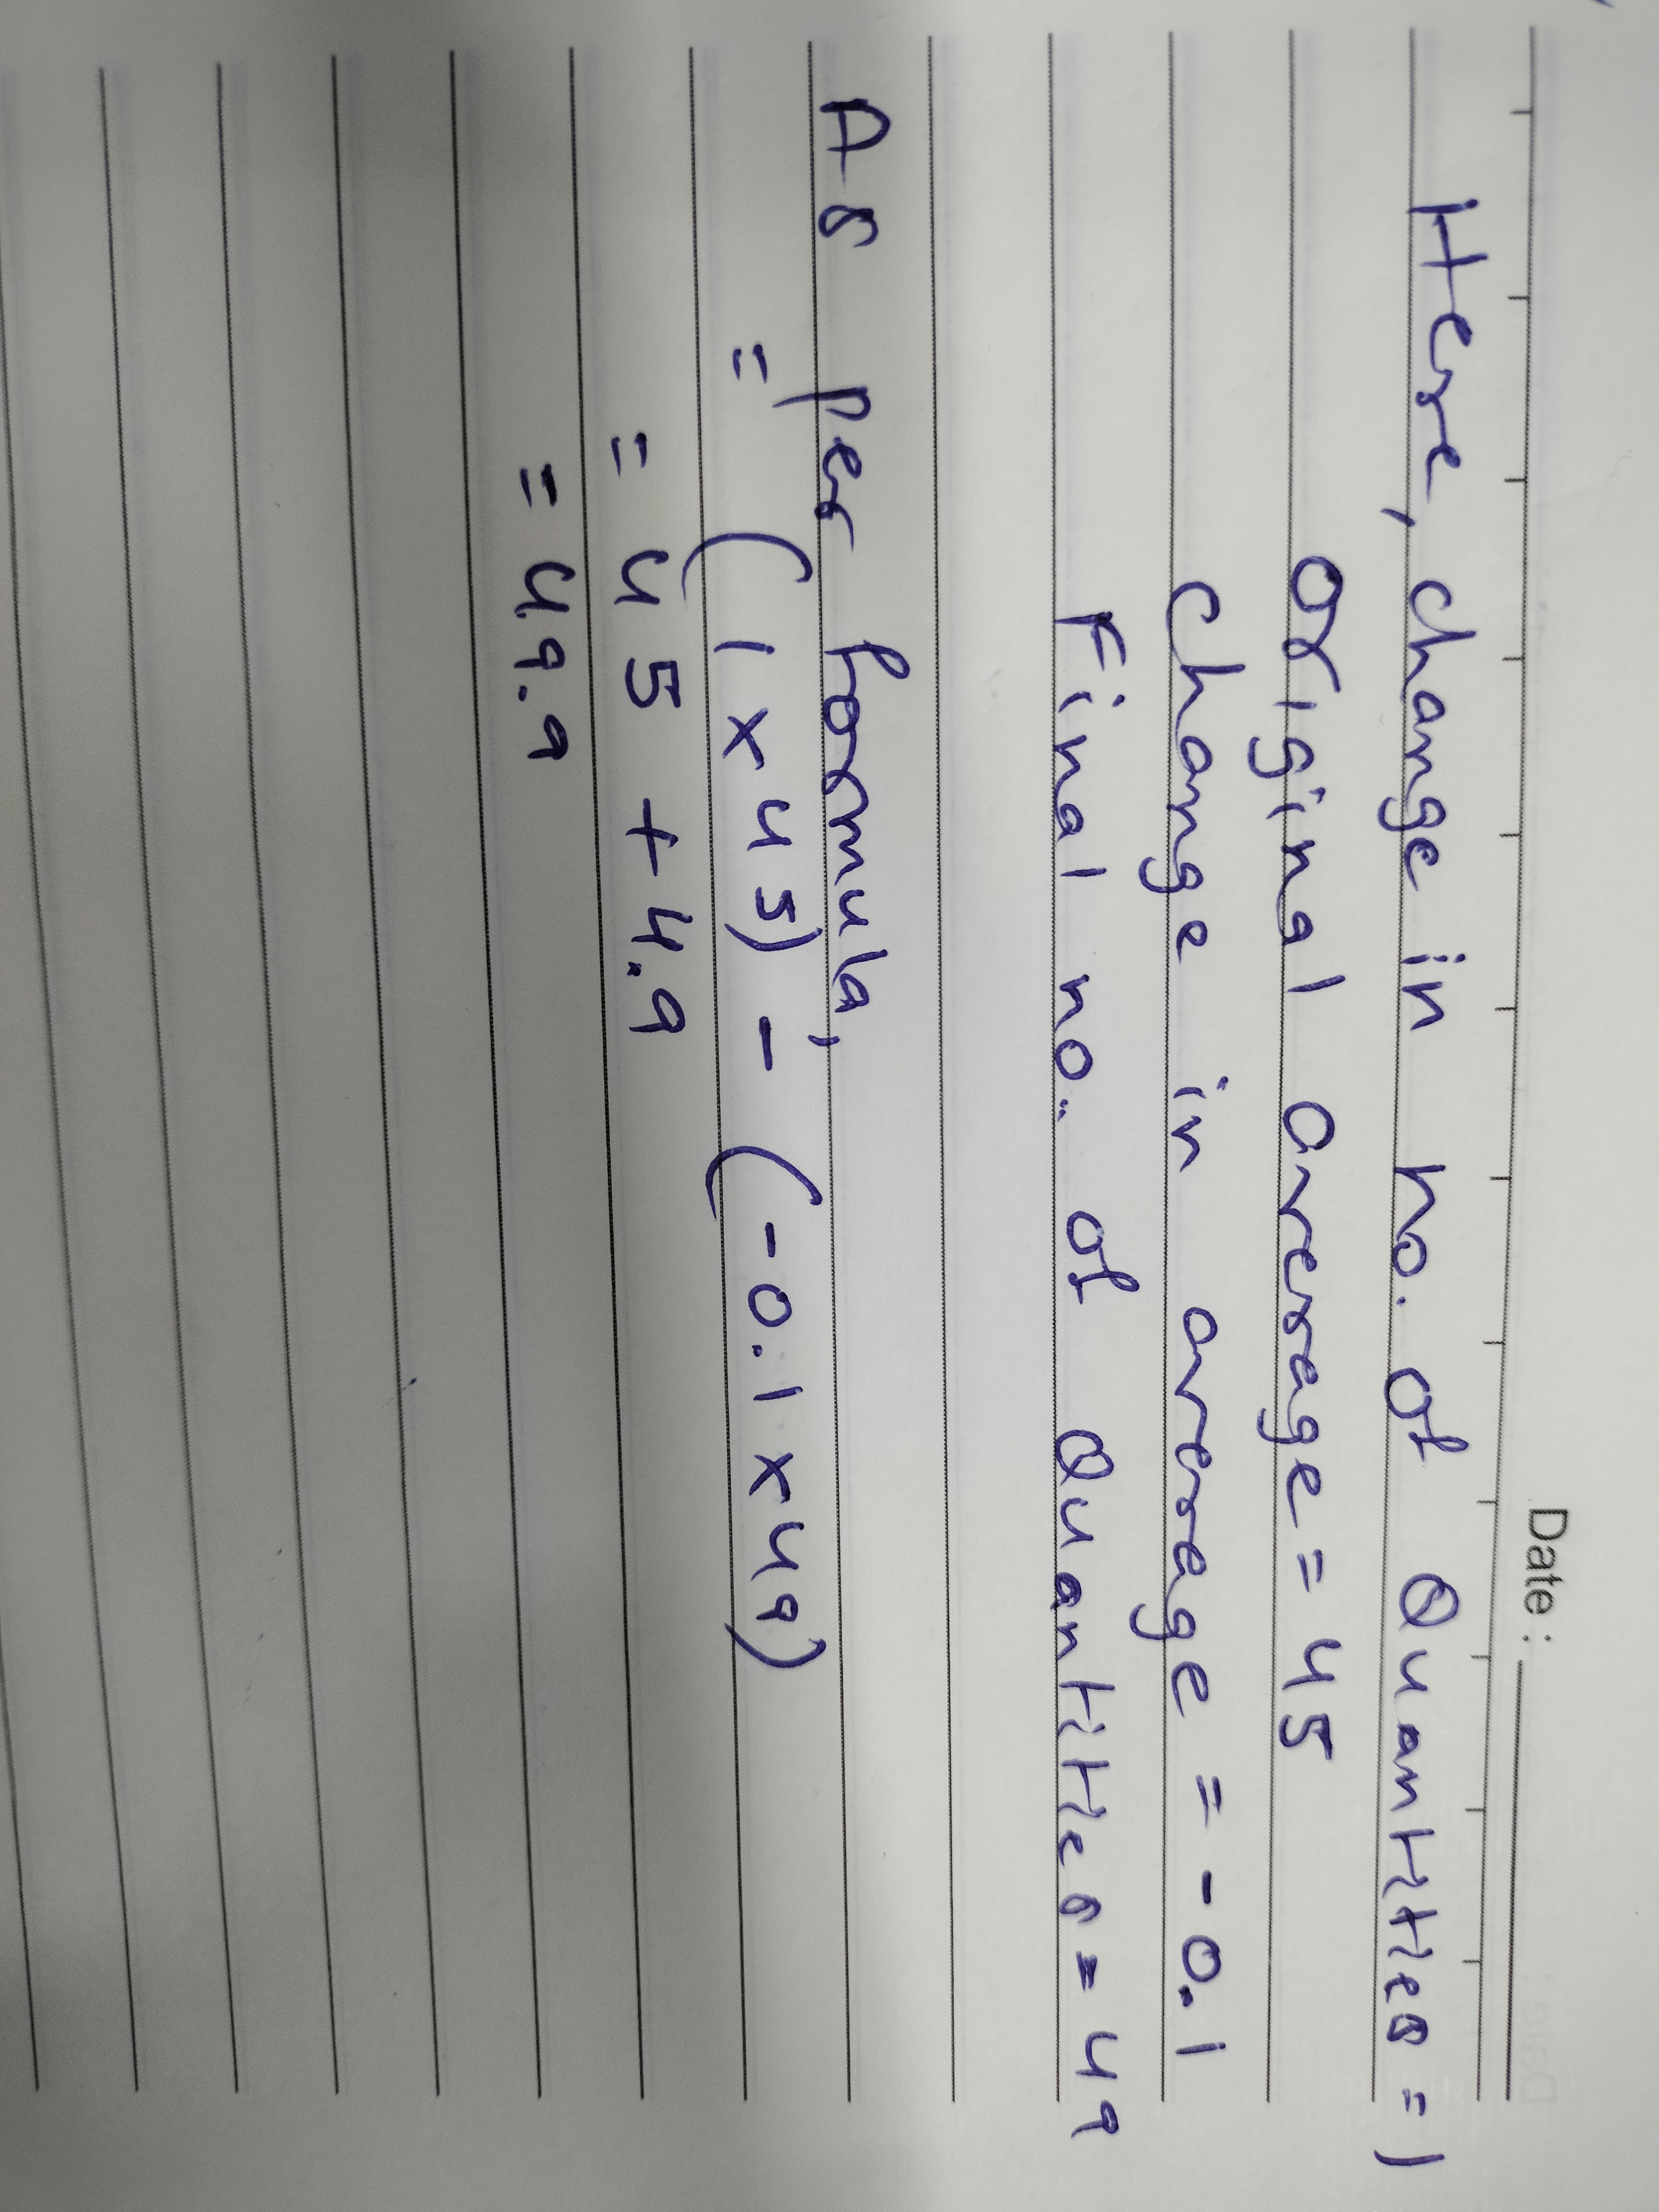 Date :
Here, change in no. of Quantities = 1
original average = 45
change in average = - 0.1
Final no. of Quantities = 49
As per formula,
= (1 x 45) - (-0.1 x 49)
= 45 + 4.9
= 49.9